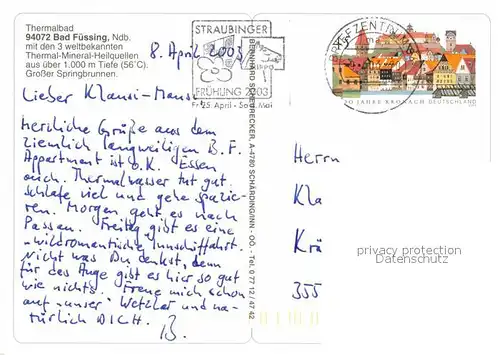 Thermalbad
94072 Bad Füssing, Ndb.
mit den 3 weltbekannten
Thermal-Mineral-Heilquellen
aus über 1.000 m Tiefe (56°C).
Großer Springbrunnen.
8. April 2003
Lieber Klausi-Mausi
Herzliche Grüße aus dem
ziemlich langweiligen B. F.
Appartment ist o.K. Essen
auch. Thermalwasser tut gut,
schlafe viel und gehe spazie-
ren. Morgen geht es nach
Passau. Freitag gibt es eine
"wildromantische" Innschiffahrt.
Nicht was Du denkst, denn
für das Auge gibt es hier so gut
wie nichts. Freue mich schon
auf "unser" Wetzlar und na-
türlich DICH. B.
STRAUBINGER
FRÜHLING 2003
Fr. 25. April - So. Mai
BRIEFZENTRUM
20 JAHRE KRONACH DEUTSCHLAND
A-4780 SCHÄRDING/INN - OÖ. - Tel. 0 77 12 / 47 42
Herrn
Kla
Krä
355
privacy protection
Datenschutz